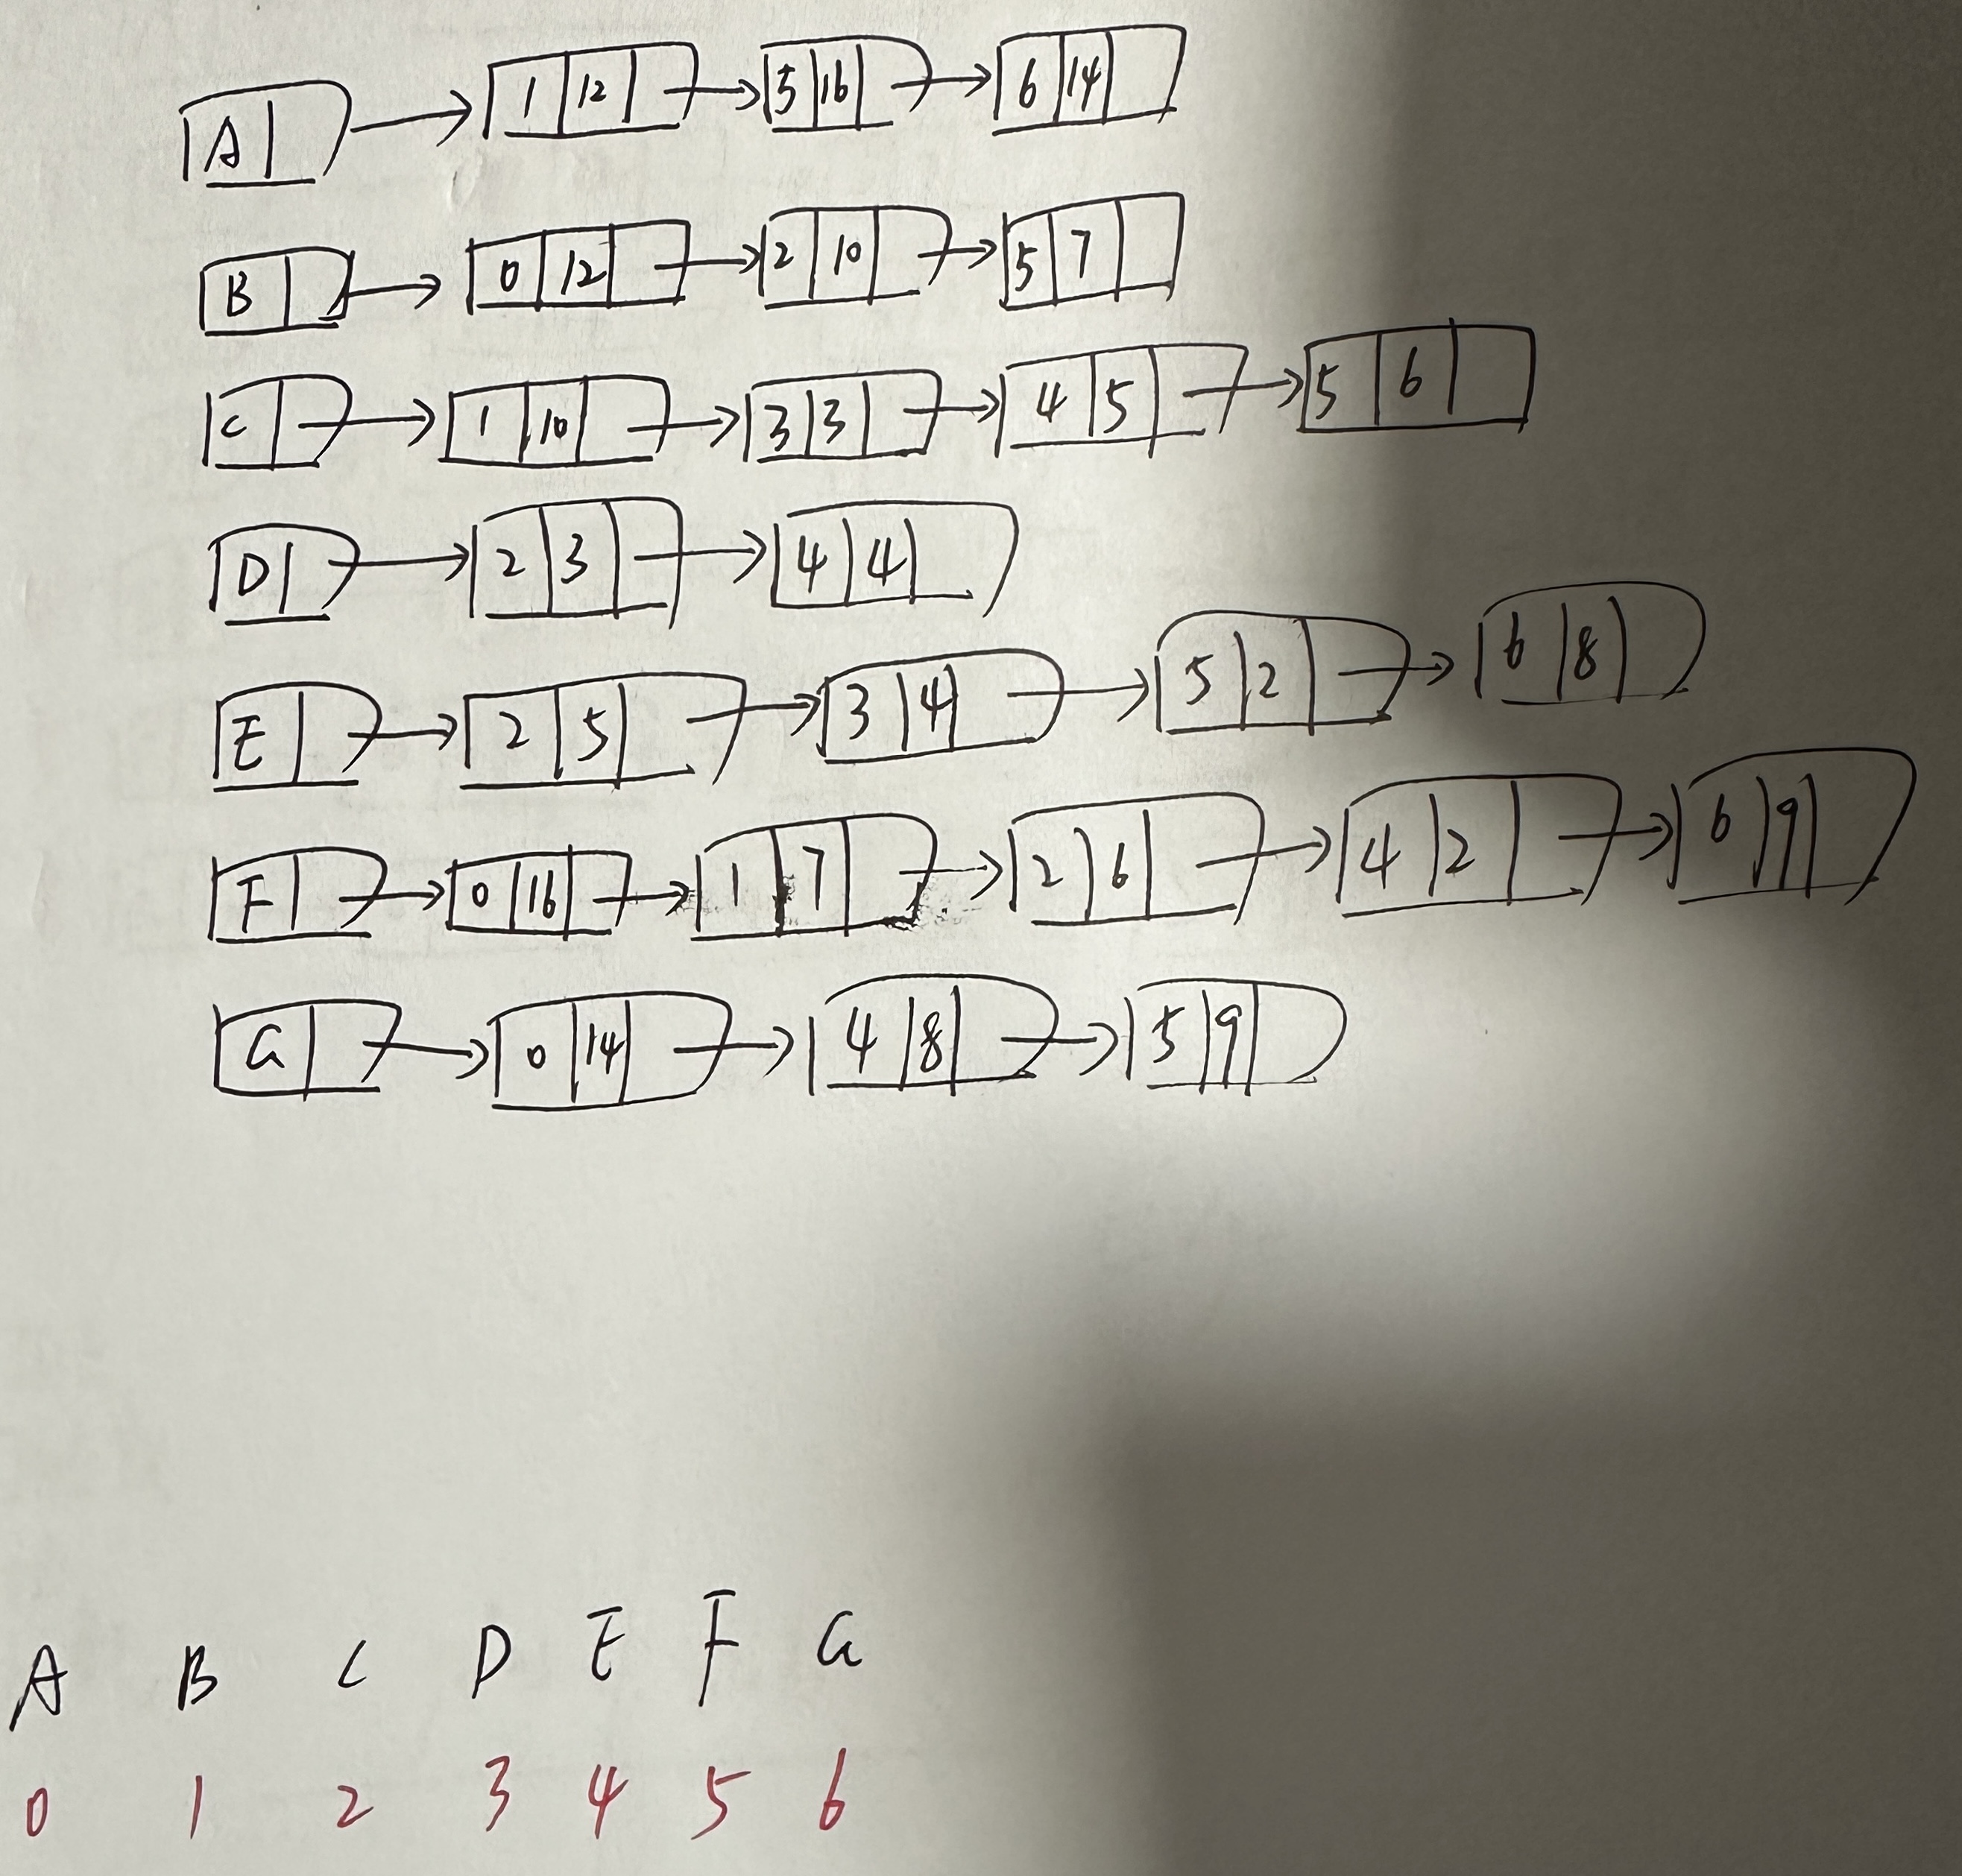 A 1 12 5 16 6 14
B 0 12 2 10 5 7
C 1 10 3 3 4 5 5 6
D 2 3 4 4
E 2 5 3 4 5 2 6 8
F 0 16 1 7 2 6 4 2 6 9
G 0 14 4 8 5 9
A B C D E F G
0 1 2 3 4 5 6